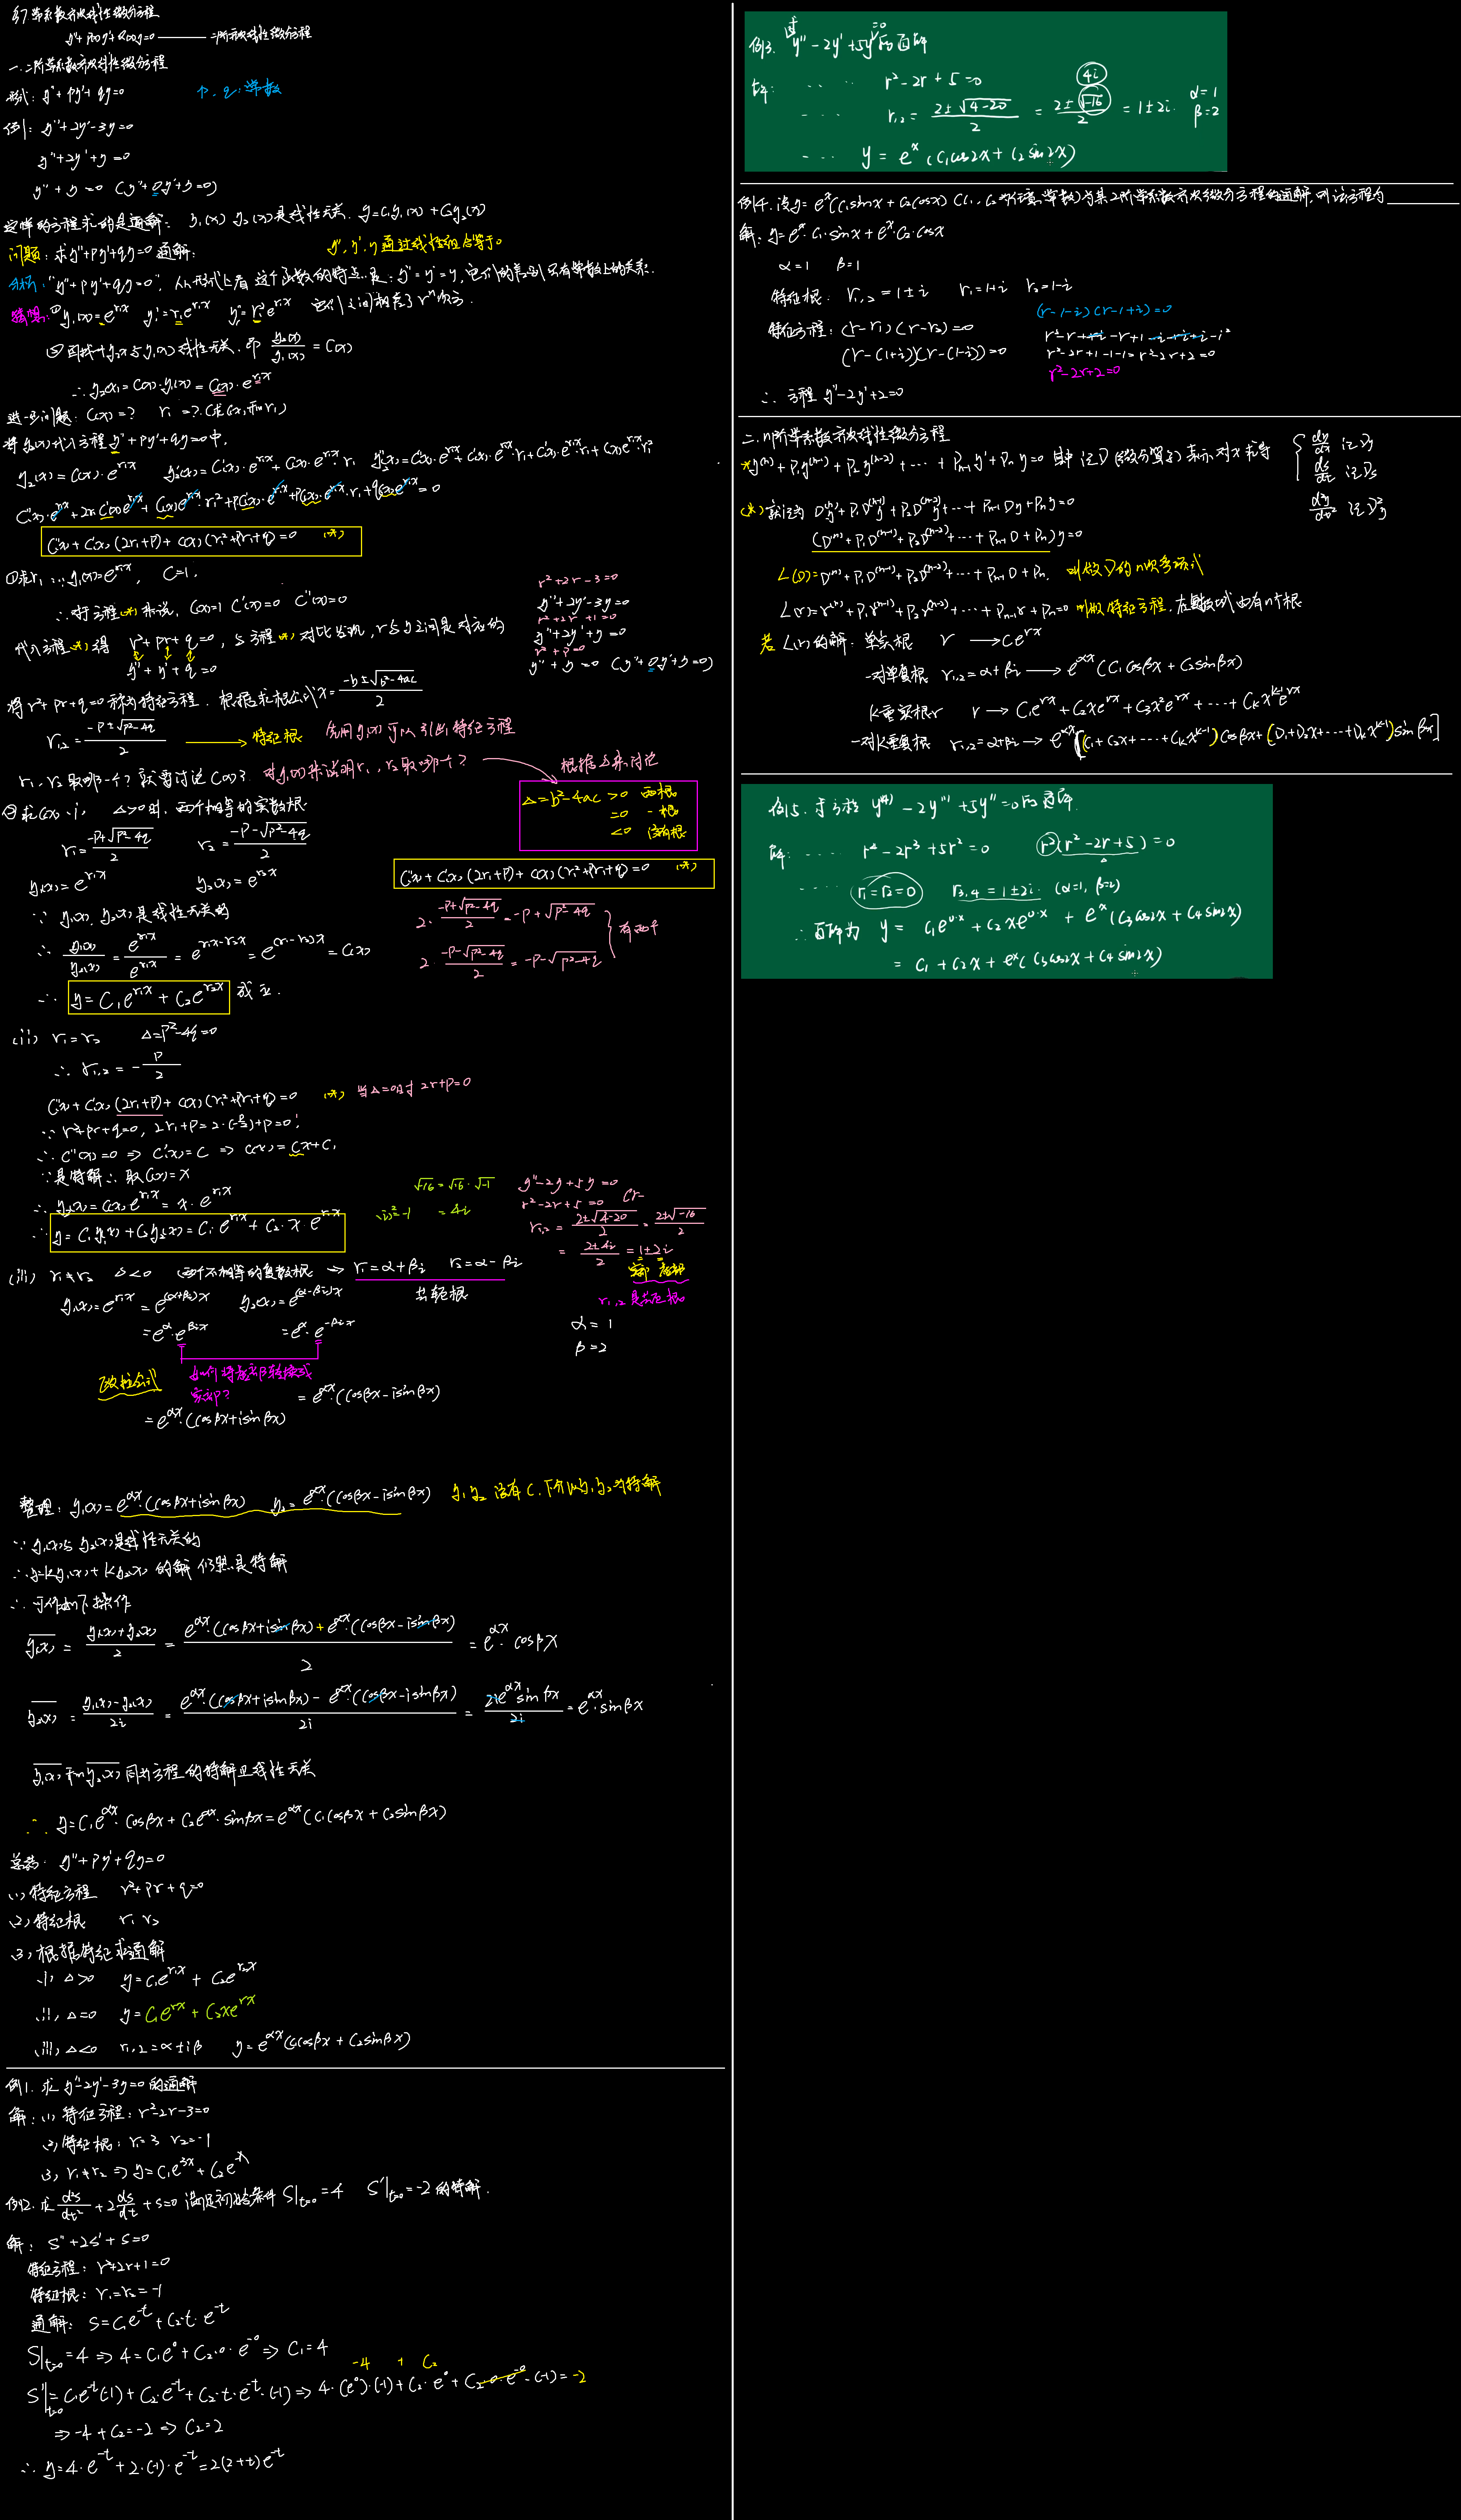 §7 常系数齐次线性微分方程
y''+p(x)y'+Q(x)y=0 —— 二阶齐次线性微分方程
一.二阶常系数齐次线性微分方程
形式: y''+py'+qy=0 p、q:常数
例1: y''+2y'-3y=0
y''+2y'+y=0
y''+y=0 (y''+0y'+y=0)
这样的方程求的是通解: y₁(x) y₂(x)是线性无关. y=C₁y₁(x)+C₂y₂(x)
问题: 求y''+py'+qy=0通解: y'',y',y通过线性组合等于0
分析:"y''+py'+qy=0", 从形式上看这个函数的特点是: y''=y'=y,它们的差别只有常数上的关系.
猜想:①y₁(x)=e^{r₁x} y₁'=r₁e^{r₁x} y₁''=r₁²e^{r₁x} 它们之间相差了rⁿ次方.
②再找一y₂(x)与y₁(x)线性无关.即 y₂(x)/y₁(x)=C(x)
∴y₂(x)=C(x)·y₁(x)=C(x)·e^{r₁x}
进一步问题: C(x)=? r₁=?(求C(x)和r₁)
将y₂(x)代入方程y''+py'+qy=0中,
y₂(x)=C(x)·e^{r₁x} y₂'(x)=C'(x)·e^{r₁x}+C(x)·e^{r₁x}·r₁ y₂''(x)=C''(x)·e^{r₁x}+C'(x)·e^{r₁x}·r₁+C'(x)·e^{r₁x}·r₁+C(x)e^{r₁x}·r₁²
C''(x)·e^{r₁x}+2r₁C'(x)e^{r₁x}+C(x)e^{r₁x}·r₁²+pC'(x)·e^{r₁x}+pC(x)·e^{r₁x}·r₁+qC(x)e^{r₁x}=0
C''(x)+C'(x)(2r₁+p)+C(x)(r₁²+pr₁+q)=0 (*)
①求r₁:∵y₁(x)=e^{r₁x}, C=1.
∴对于方程(*)来说, C(x)=1 C'(x)=0 C''(x)=0
代入方程(*)得 r²+pr+q=0, 与方程(*)对比发现,r与y之间是对应的
y''+y'+q=0
r²+2r-3=0
y''+2y'-3y=0
r²+2r+1=0
y''+2y'+y=0
y''+y=0 (y''+0y'+y=0)
将r²+pr+q=0称为特征方程. 根据求根公式x=(-b±√(b²-4ac))/2
r₁,₂=(-p±√(p²-4q))/2 → 特征根 先用y₁(x)可以引出特征方程
r₁、r₂取哪一个?就要讨论C(x)? 对y₁(x)来说明r₁、r₂取哪个? 根据△来讨论
△=b²-4ac>0 两根
=0 一根
<0 没有根
②求C(x) (i) △>0时,两个不相等的实数根
r₁=(-p+√(p²-4q))/2 r₂=(-p-√(p²-4q))/2
C''(x)+C'(x)(2r₁+p)+C(x)(r₁²+pr₁+q)=0 (*)
y₁(x)=e^{r₁x} y₂(x)=e^{r₂x}
∵ y₁(x) y₂(x)是线性无关的
∴ y₁(x)/y₂(x)=e^{r₁x}/e^{r₂x}=e^{r₁x-r₂x}=e^{(r₁-r₂)x}=C(x)
2·(-p+√(p²-4q))/2=-p+√(p²-4q)
2·(-p-√(p²-4q))/2=-p-√(p²-4q)
有两个
∴ y=C₁e^{r₁x}+C₂e^{r₂x} 成立.
(ii) r₁=r₂ △=p²-4q=0
∴ r₁,₂=-p/2
C''(x)+C'(x)(2r₁+p)+C(x)(r₁²+pr₁+q)=0 (*) 当△=0时 2r+p=0
∵r²+pr+q=0, 2r₁+p=2·(-p/2)+p=0
∴C''(x)=0 ⇒ C'(x)=C ⇒ C(x)=Cx+C₁
∵是特解∴取C(x)=x
∴y₂(x)=C(x)e^{r₁x}=x·e^{r₁x}
∴ y=C₁y₁(x)+C₂y₂(x)=C₁e^{r₁x}+C₂·x·e^{r₁x}
√-16=√16·√-1
(i)²=-1 =4i
y''-2y+5y=0
r²-2r+5=0
r₁,₂=(2±√(4-20))/2=(2±√-16)/2
=(2±4i)/2=1±2i
实部 虚部
r₁,₂是共轭根
α=1
β=2
(iii) r₁≠r₂ △<0 (两个不相等的复数根 → r₁=α+βi r₂=α-βi
共轭根
y₁(x)=e^{r₁x}=e^{(α+βi)x} y₂(x)=e^{(α-βi)x}
=e^{α}·e^{βix} =e^{α}·e^{-βix}
欧拉公式 如何将虚部转换成实部?
=e^{αx}·(cosβx-isinβx)
=e^{αx}·(cosβx+isinβx)
整理: y₁(x)=e^{αx}·(cosβx+isinβx) y₂=e^{αx}·(cosβx-isinβx) y₁y₂没有C,所以y₁y₂为特解
∵y₁(x)与y₂(x)是线性无关的
∴y=ky₁(x)+ky₂(x)的解仍然是特解
∴可作如下操作
y₁(x)=(y₁(x)+y₂(x))/2=(e^{αx}·(cosβx+isinβx)+e^{αx}·(cosβx-isinβx))/2=e^{αx}·cosβx
y₂(x)=(y₁(x)-y₂(x))/2i=(e^{αx}·(cosβx+isinβx)-e^{αx}·(cosβx-isinβx))/2i=2ie^{αx}sinβx/2i=e^{αx}·sinβx
y₁(x)和y₂(x)同为方程的特解且线性无关
∴ y=C₁e^{αx}·cosβx+C₂e^{αx}·sinβx=e^{αx}(C₁cosβx+C₂sinβx)
总结: y''+py'+qy=0
(1)特征方程 r²+pr+q=0
(2)特征根 r₁ r₂
(3)根据特征求通解
(i) △>0 y=C₁e^{r₁x}+C₂e^{r₂x}
(ii) △=0 y=C₁e^{rx}+C₂xe^{rx}
(iii) △<0 r₁,₂=α±iβ y=e^{αx}(C₁cosβx+C₂sinβx)
例1. 求y''-2y'-3y=0的通解
解:(1)特征方程: r²-2r-3=0
(2)特征根: r₁=3 r₂=-1
(3) r₁≠r₂ ⇒ y=C₁e^{3x}+C₂e^{-x}
例2.求d²s/dt²+2ds/dt+s=0 满足初始条件 S|t=0=4 S'|t=0=-2的特解.
解: S''+2S'+S=0
特征方程: r²+2r+1=0
特征根: r₁=r₂=-1
通解: S=C₁e^{-t}+C₂·t·e^{-t}
S|t=0=4 ⇒ 4=C₁e⁰+C₂·0·e^{-0} ⇒ C₁=4
-4 + C₂
S'|t=0=C₁e^{-t}(-1)+C₂·e^{-t}+C₂·t·e^{-t}·(-1) ⇒ 4·(e⁰)·(-1)+C₂·e⁰+C₂·0·e^{-0}·(-1)=-2
⇒ -4+C₂=-2 ⇒ C₂=2
∴ y=4·e^{-t}+2·(-1)·e^{-t}=2(2+t)e^{-t}
例3. 求y''-2y'+5y=0的通解
解: ... r²-2r+5=0 4i
... r₁,₂=(2±√(4-20))/2=(2±√-16)/2=1±2i. α=1 β=2
... y=e^{x}(C₁cos2x+C₂sin2x)
例4.设y=e^{x}(C₁sinx+C₂cosx) (C₁、C₂为任意常数)为某2阶常系数齐次微分方程的通解,则该方程为
解: y=e^{x}·C₁·sinx+e^{x}·C₂·cosx
α=1 β=1
特征根: r₁,₂=1±i r₁=1+i r₂=1-i
特征方程: (r-r₁)(r-r₂)=0
(r-(1+i))(r-(1-i))=0
(r-1-i)(r-1+i)=0
r²-r+ri-r+1-i-ri+i-i²
r²-2r+1-1-1=r²-2r+2=0
r²-2r+2=0
∴ 方程 y''-2y'+2=0
二.n阶常系数齐次线性微分方程
*y⁽ⁿ⁾+P₁y⁽ⁿ⁻¹⁾+P₂y⁽ⁿ⁻²⁾+⋯+Pₙ₋₁y'+Pₙy=0 其中 记D(微分算子)表示对x求导
dy/dx 记Dy
ds/dt 记Ds
d²y/dx² 记D²y
(*)就记为 D⁽ⁿ⁾y+P₁D⁽ⁿ⁻¹⁾y+P₂D⁽ⁿ⁻²⁾y+⋯+Pₙ₋₁Dy+Pₙy=0
(D⁽ⁿ⁾+P₁D⁽ⁿ⁻¹⁾+P₂D⁽ⁿ⁻²⁾+⋯+Pₙ₋₁D+Pₙ)y=0
L(D)=D⁽ⁿ⁾+P₁D⁽ⁿ⁻¹⁾+P₂D⁽ⁿ⁻²⁾+⋯+Pₙ₋₁D+Pₙ. 叫做D的n次多项式
L(r)=r⁽ⁿ⁾+P₁r⁽ⁿ⁻¹⁾+P₂r⁽ⁿ⁻²⁾+⋯+Pₙ₋₁r+Pₙ=0 叫做特征方程.在复数域内有n个根
若L(r)的解: 单实根 r → Ce^{rx}
一对单复根 r₁,₂=α+βi → e^{αx}(C₁cosβx+C₂sinβx)
k重实根r r → C₁e^{rx}+C₂xe^{rx}+C₃x²e^{rx}+⋯+Cₖx^{k-1}e^{rx}
一对k重复根 r₁,₂=α+βi → e^{αx}[(C₁+C₂x+⋯+Cₖx^{k-1})cosβx+(D₁+D₂x+⋯+Dₖx^{k-1})sinβx]
例5. 求方程 y⁽⁴⁾-2y'''+5y''=0的通解.
解: ... r⁴-2r³+5r²=0 r²(r²-2r+5)=0
... r₁=r₂=0 r₃,₄=1±2i. (α=1, β=2)
∴通解为 y=C₁e^{0·x}+C₂xe^{0·x}+e^{x}(C₃cos2x+C₄sin2x)
=C₁+C₂x+e^{x}(C₃cos2x+C₄sin2x)